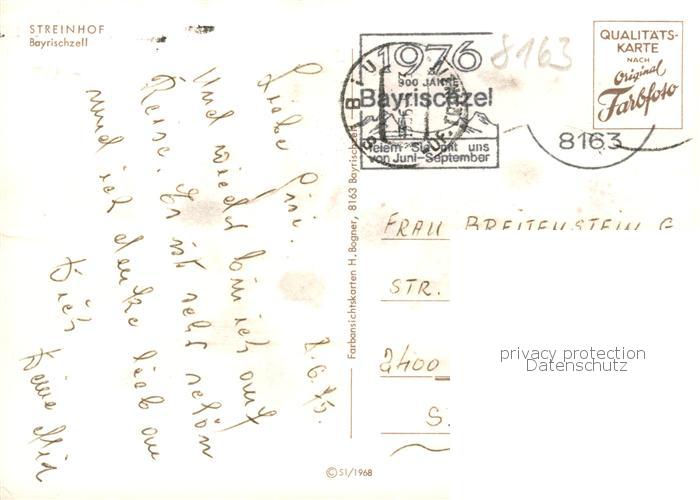 STREINHOF
Bayrischzell
8.6.75.
Und wieder bin ich auf
Reise. Es ist sehr schön
und ich denke lieb an
Dich
Deine
Farbansichtskarten H. Bogner, 8163 Bayrischzell
© 51/1968
1976
900 JAHRE
Bayrischzel
feiern Sie mit uns
von Juni-September
8163
8163
QUALITÄTS-
KARTE
NACH
Original
Farbfoto
FRAU BREITENSTEIN G
STR.
2400
S
privacy protection
Datenschutz